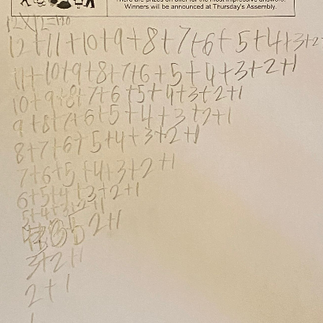 There are prizes on offer for the most impressive answers.
Winners will be announced at Thursday's Assembly.
12+11+10+9+8+7+6+5+4+3+2
11+10+9+8+7+6+5+4+3+2+1
10+9+8+7+6+5+4+3+2+1
9+8+7+6+5+4+3+2+1
8+7+6+5+4+3+2+1
7+6+5+4+3+2+1
6+5+4+3+2+1
5+4+3+2+1
2+1
3+2+1
2+1
1